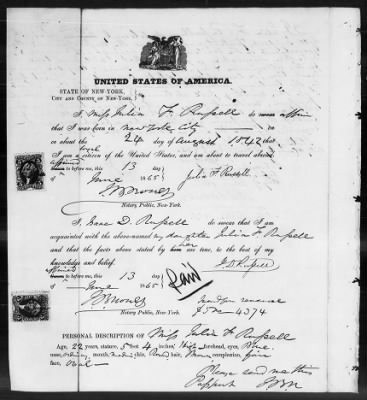 UNITED STATES OF AMERICA.
STATE OF NEW-YORK,
CITY AND COUNTY OF NEW-YORK.
I, Miss Julia F Russell do swear affirm
that I was born in New York City
on or about the 24 day of August 1842 that
I am a citizen of the United States, and am about to travel abroad.
affirmed to before me, this 13 day
of June 1865 Julia F. Russell
Notary Public, New-York.
I, Isaac D. Russell do swear that I am
acquainted with the above-named my daughter Julia F. Russell
and that the facts above stated by her are true, to the best of my
knowledge and belief. I. D. Russell
affirmed to before me, this 13 day
of June 1865
Notary Public, New-York.
4374
PERSONAL DESCRIPTION OF Miss Julia F. Russell
Age, 22 years, 5 feet 4 inches, High forehead, eyes, Blue
nose, ordinary mouth, medium chin, Round hair, Brown complexion, fair
face, Oval
Please send me this
Passport